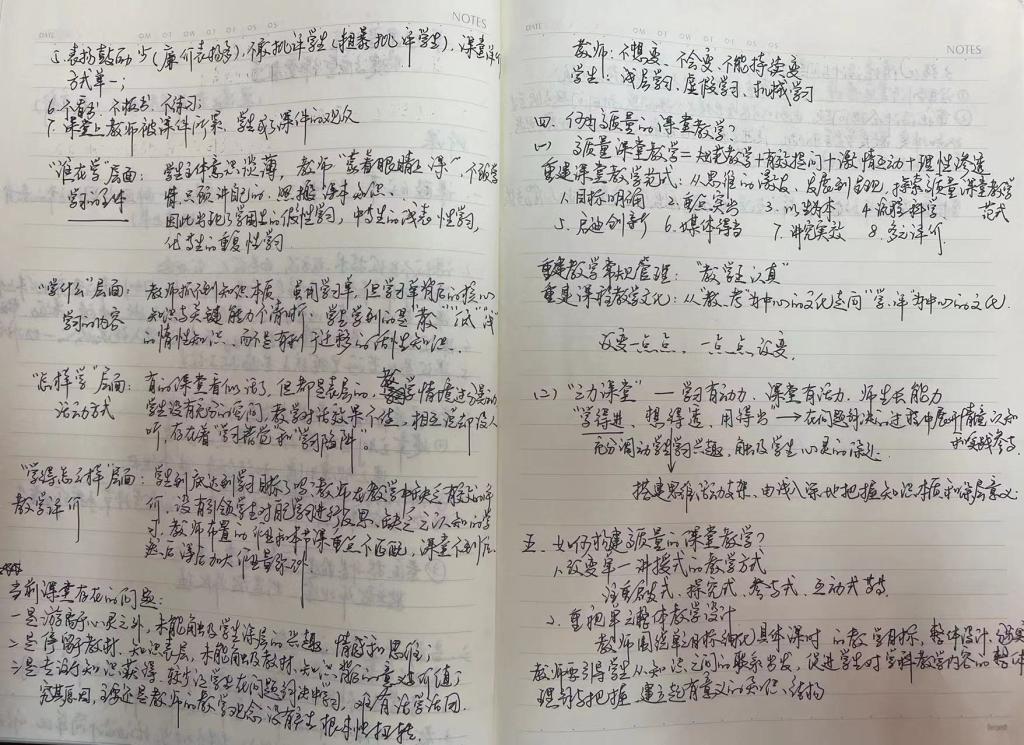 NOTES
DATE
5. 表扬鼓励少(廉价表扬多),不敢批评学生(粗暴批评学生),课堂评价
方式单一;
6. 不看书、不板书、不练习;
7. 课堂上教师被课件所累,学生成了课件的观众
"谁在学"层面: 学生主体意识淡薄,教师"蒙着眼睛上课",不顾学
学习的主体 情,只顾讲自己的,照搬课本知识.
因此出现了学困生的假性学习,中等生的浅表性学习,
优等生的重复性学习
"学什么"层面: 教师抓不到知识本质,虽用学习单,但学习单背后的核心
学习的内容 知识与关键能力不清晰;学生学到的是"教""试""浅"
的惰性知识,而不是有利于迁移的活性知识.
"怎样学"层面: 有的课堂看似活了,但都是表层的,教学情境过分是动
活动方式 学生没有充分的空间,教学对话效果不佳,相互说却没人
听,存在着"学习"和"学习陷阱"。
"学得怎么样"层面: 学生到底达到学习目标了吗?教师在教学中缺乏有效的评
教学评价 价,没有引领学生对自己学习进行反思,缺乏元认知的学
习,教师布置的作业和本节课重点不匹配,课堂不到位
然后课后加大作业量弥补.
当前课堂存在的问题:
一是游离于心灵之外,未能触及学生深层的兴趣、情感和思维;
二是停留教材、知识表层,未能触及教材、知识背后的意义价值;
三是专设知识获得,缺少让学生在问题解决中学习,难有活学活用.
究其原因,主要还是教师的教学观念没有产生根本性扭转.
DATE
NOTES
教师:不想变、不会变、不能持续变
学生:浅层学习、虚假学习、机械学习
四、何为高质量的课堂教学?
(一) 高质量课堂教学=知识教学+有效提问+激情互动+理性渗透
重建课堂教学范式:从思维的激发、发展到呈现,探索高质量课堂教学
范式
1. 目标明确 2. 重点突出 3. 以生为本 4. 流程科学
5. 启迪创新 6. 媒体得当 7. 讲究实效 8. 多元评价
重建教学常规管理:"教学生认真"
重建课程教学文化:从"教、考"为中心的文化走向"学、评"为中心的文化.
改变一点点,一点点改变.
(2) "三力课堂"—学习有动力、课堂有活力、师生长能力
"学得进、想得透、用得出"→在问题解决的过程中展开情意认知
和实践参与.
充分调动学生学习兴趣,触及学生心灵的深处.
搭建思维活动支架、由浅入深地把握知识本质和深层意义.
五、如何构建高质量的课堂教学?
1. 改变单一讲授式的教学方式
注重启发式、探究式、参与式、互动式等
2. 重视单元整体教学设计
教师围绕单元目标细化具体课时的教学目标,整体设计,
教师要引导学生从知识之间的联系出发,促进学生对学科教学内容的整体
理解与把握,建立起有意义的知识结构